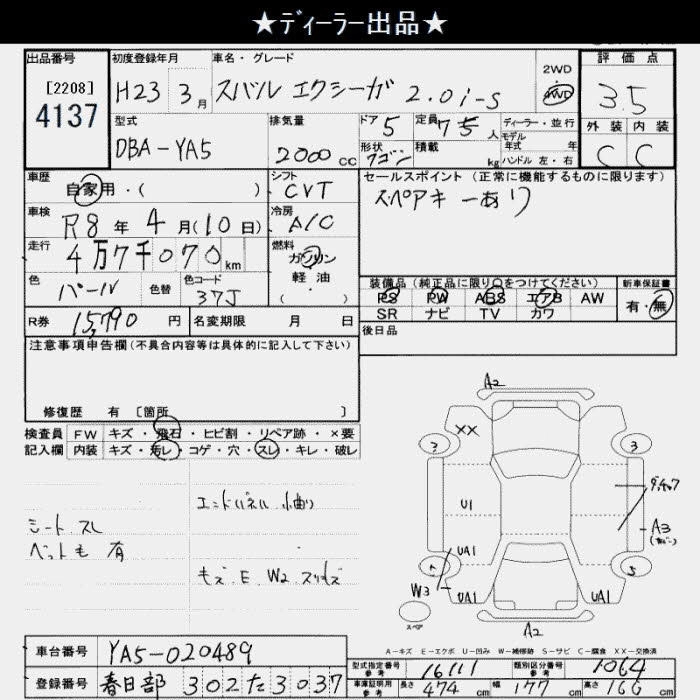 ★ディーラー出品★
出品番号
[2208]
4137
初度登録年月
H23 3月
車名・グレード
スバル エクシーガ 2.0i-S
2WD
4WD
評価点
3.5
外装 内装
C C
型式
DBA-YA5
排気量
2000 cc
ドア 5
定員 7 人
形状 ワゴン
積載 kg
ディーラー・並行
モデル年式 年
ハンドル 左・右
車歴
自家用・( )
シフト
CVT
セールスポイント (正常に機能するものに限ります)
スペアキーあり
車検
R8年 4月(10日)
冷房
A/C
走行
4万7千070km
燃料
ガソリン
軽・油
( )
色
パール
色替
色コード
37J
装備品(純正品に限り○をつけてください)
新車保証書
PS PW ABS エアB AW
有・無
SR ナビ TV カワ
R券 15,790円
名変期限 月 日
後日品
注意事項申告欄(不具合内容等は具体的に記入して下さい)
修復歴 有 [箇所 ]
検査員記入欄
FW キズ・飛石・ヒビ割・リペア跡・×要
内装 キズ・汚レ・コゲ・穴・スレ・キレ・破レ
シート スレ
ペット毛 有
エンドパネル 小曲り
キズ.E.W2 スリキズ
A2
XX
3
U1
A3
UA1
5
W3
UA1
UA1
スペア
A2
A-キズ E-エクボ U-凹み W-補修跡 S-サビ C-腐食 XX-交換済
車台番号 YA5-020489
登録番号 春日部 302 た 3037
型式指定番号 参考 16111
類別区分番号 参考 1064
車庫証明用 参考 長さ 474 cm 幅 177 cm 高さ 166 cm